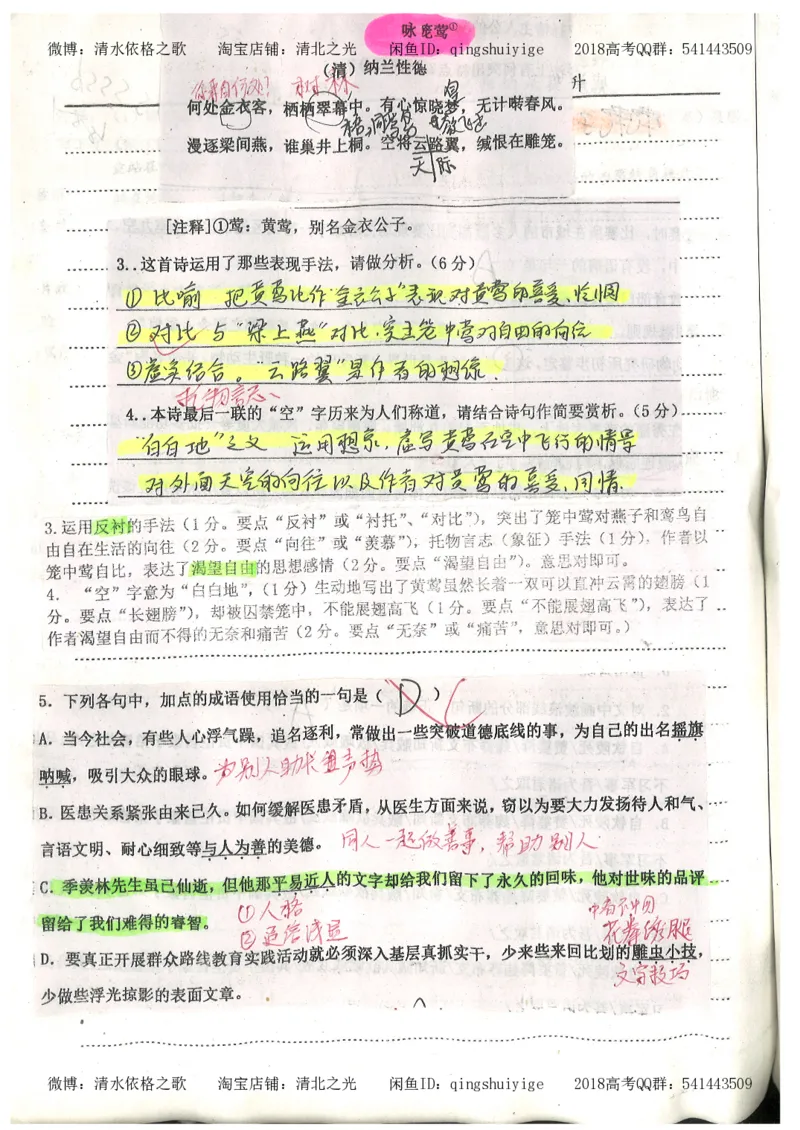 咏笼莺①
微博：清水依格之歌 淘宝店铺：清北之光 闲鱼ID：qingshuiyige 2018高考QQ群：541443509
（清）纳兰性德
你来自何处？ 树林
何处金衣客，栖栖翠幕中。有心惊晓梦，无计啭春风。
漫逐梁间燕，谁巢井上桐。空将云路翼，缄恨在雕笼。
天际
[注释]①莺：黄莺，别名金衣公子。
3..这首诗运用了那些表现手法，请做分析。（6分）
①比喻 把黄莺比作“金衣公子”表现对黄莺的喜爱、怜悯
②对比 与“梁上燕”对比，突出笼中莺对自由的向往
③虚实结合。“云路翼”是作者的想象.
托物言志
4..本诗最后一联的“空”字历来为人们称道，请结合诗句作简要赏析。（5分）
“白白地”之义 运用想象，虚写黄莺在空中飞行的情景
对外面天空的向往以及作者对黄莺的喜爱、同情.
3.运用反衬的手法（1分。要点“反衬”或“衬托”、“对比”），突出了笼中莺对燕子和鸾鸟自
由自在生活的向往（2分。要点“向往”或“羡慕”），托物言志（象征）手法（1分），作者以
笼中莺自比，表达了渴望自由的思想感情（2分。要点“渴望自由”）。意思对即可。
4. “空”字意为“白白地”，（1分）生动地写出了黄莺虽然长着一双可以直冲云霄的翅膀（1
分。要点“长翅膀”），却被囚禁笼中，不能展翅高飞（1分。要点“不能展翅高飞”），表达了
作者渴望自由而不得的无奈和痛苦（2分。要点“无奈”或“痛苦”，意思对即可。）
5．下列各句中，加点的成语使用恰当的一句是（ D ） C
A．当今社会，有些人心浮气躁，追名逐利，常做出一些突破道德底线的事，为自己的出名摇旗
呐喊，吸引大众的眼球。 为别人助长声势
B．医患关系紧张由来已久。如何缓解医患矛盾，从医生方面来说，窃以为要大力发扬待人和气、
言语文明、耐心细致等与人为善的美德。 同人一起做善事，帮助别人
C．季羡林先生虽已仙逝，但他那平易近人的文字却给我们留下了永久的回味，他对世味的品评
留给了我们难得的睿智。 ①人格
②通俗浅显
中看不中用
花拳绣腿
D．要真正开展群众路线教育实践活动就必须深入基层真抓实干，少来些来回比划的雕虫小技，
文字技巧
少做些浮光掠影的表面文章。
微博：清水依格之歌 淘宝店铺：清北之光 闲鱼ID：qingshuiyige 2018高考QQ群：541443509